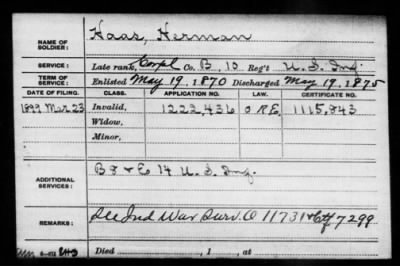 NAME OF SOLDIER: Haas, Herman
SERVICE: Late rank, Corpl Co. B, 10 Reg't U. S. Inf.
TERM OF SERVICE: Enlisted May 19, 1870 Discharged May 19, 1875
DATE OF FILING. CLASS. APPLICATION NO. LAW. CERTIFICATE NO.
1899 Mar 23 Invalid, 1222,436 O R E. 1115,843
Widow,
Minor,
ADDITIONAL SERVICES: B F & E 14 U. S. Inf.
REMARKS: See Ind War Surv. O 11731 & Ctf 7299
Died , 1 , at